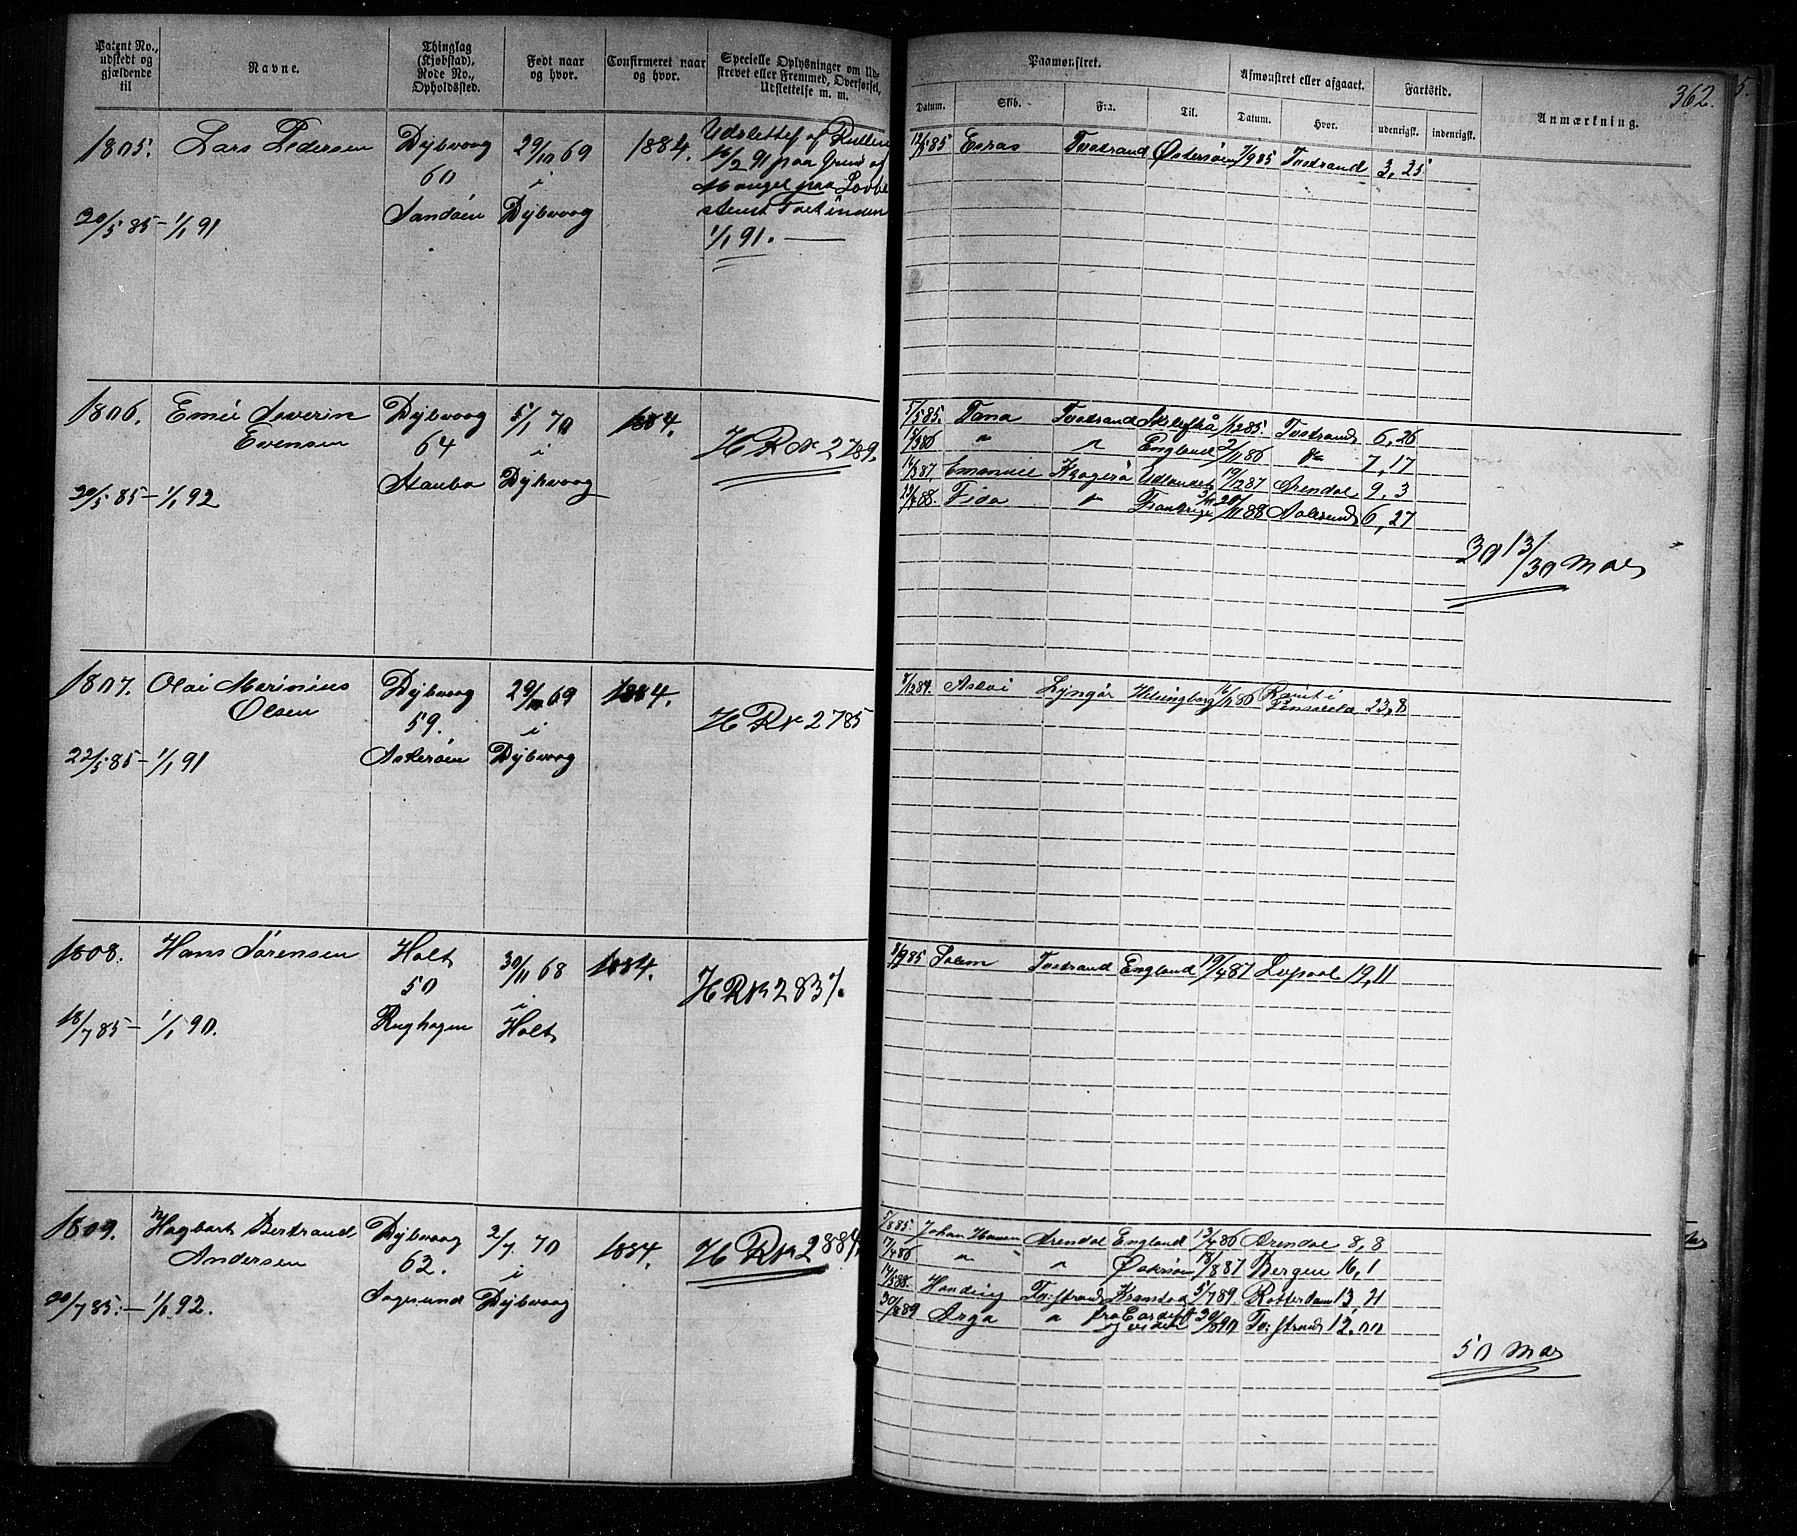 Patent No., udstedt og gjældende til
Navne.
Thinglag (Kjøbstad), Rode No., Opholdssted.
Født naar og hvor.
Confirmeret naar og hvor.
Specielle Oplysninger om Udskrevet eller Fremmed, Overførsel, Udslettelse m. m.
Paamønstret.
Afmønstret eller afgaaet.
Fartstid.
Anmærkning.
362.
5.
Datum. Skib. Fra. Til. Datum. Hvor. udenrigsk. indenrigsk.
1805. Lars Pedersen Dybvaag 29/10 69 1884. Udslettet af Rullen
60 i 16/2 91 paa Grund af
Mangel paa Lovbe
20/5 85 - 1/1 91 Sandøen Dybvaag stemt Fart inden
1/1 91.
12/5 85 Esras Tvestrand Østersøen 7/9 85 Tvestrand 3, 25
1806. Emil Severin Dybvaag 5/1 70 1884. H R N 2789.
Evensen 64 i
20/5 85 - 1/1 92 Staubø Dybvaag
5/5 85. Tana Tvestrand Skelefteå 1/12 85. Tvestrand 6, 26
" " England 2/11 86 do 7, 17
Emanuel Kragerø Udlandet 19/12 87 Arendal 9, 3
Fido " Frankrige 20/11 88 Aalesund 6, 27
30 13/30 Mdr
1807. Olai Marinius Dybvaag 29/11 69 1884. H R N 2785
Olsen 59. i
22/5 85 - 1/1 91 Askerøen Dybvaag
8/12 84. Aslai Lyngør Helsingborg 16/12 86 Rømt i
Pensacola 23, 8
1808. Hans Sørensen Holt 30/11 68 1884. H R N 2837.
50 i
18/7 85 - 1/1 90. Rughagen Holt
8/9 85 Salem Tvestrand England 19/4 87 Lvpool 19, 11
1809. Hagbart Bertrand Dybvaag 2/7 70 1884. H R N 2884.
Andersen 62. i
20/7 85. - 1/1 92. Sagesund Dybvaag
5/8 85. Johan Hansen Arendal England 13/4 86 Arendal 8, 8
17/4 86 " " " Østersøen 18/8 87 Bergen 16, 1
14/5 88. Handig Tvestrand Kronstad 5/7 89. Rotterdam 13, 21
30/8 89 Arga " fra Cardiff 30/8 90 Tvestrand 12, 00
og videre
50 Mdr